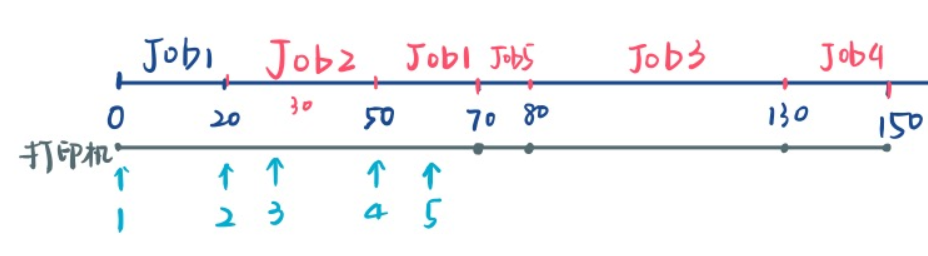 Job1 Job2 Job1 Job5 Job3 Job4
30
0 20 50 70 80 130 150
打印机
1 2 3 4 5